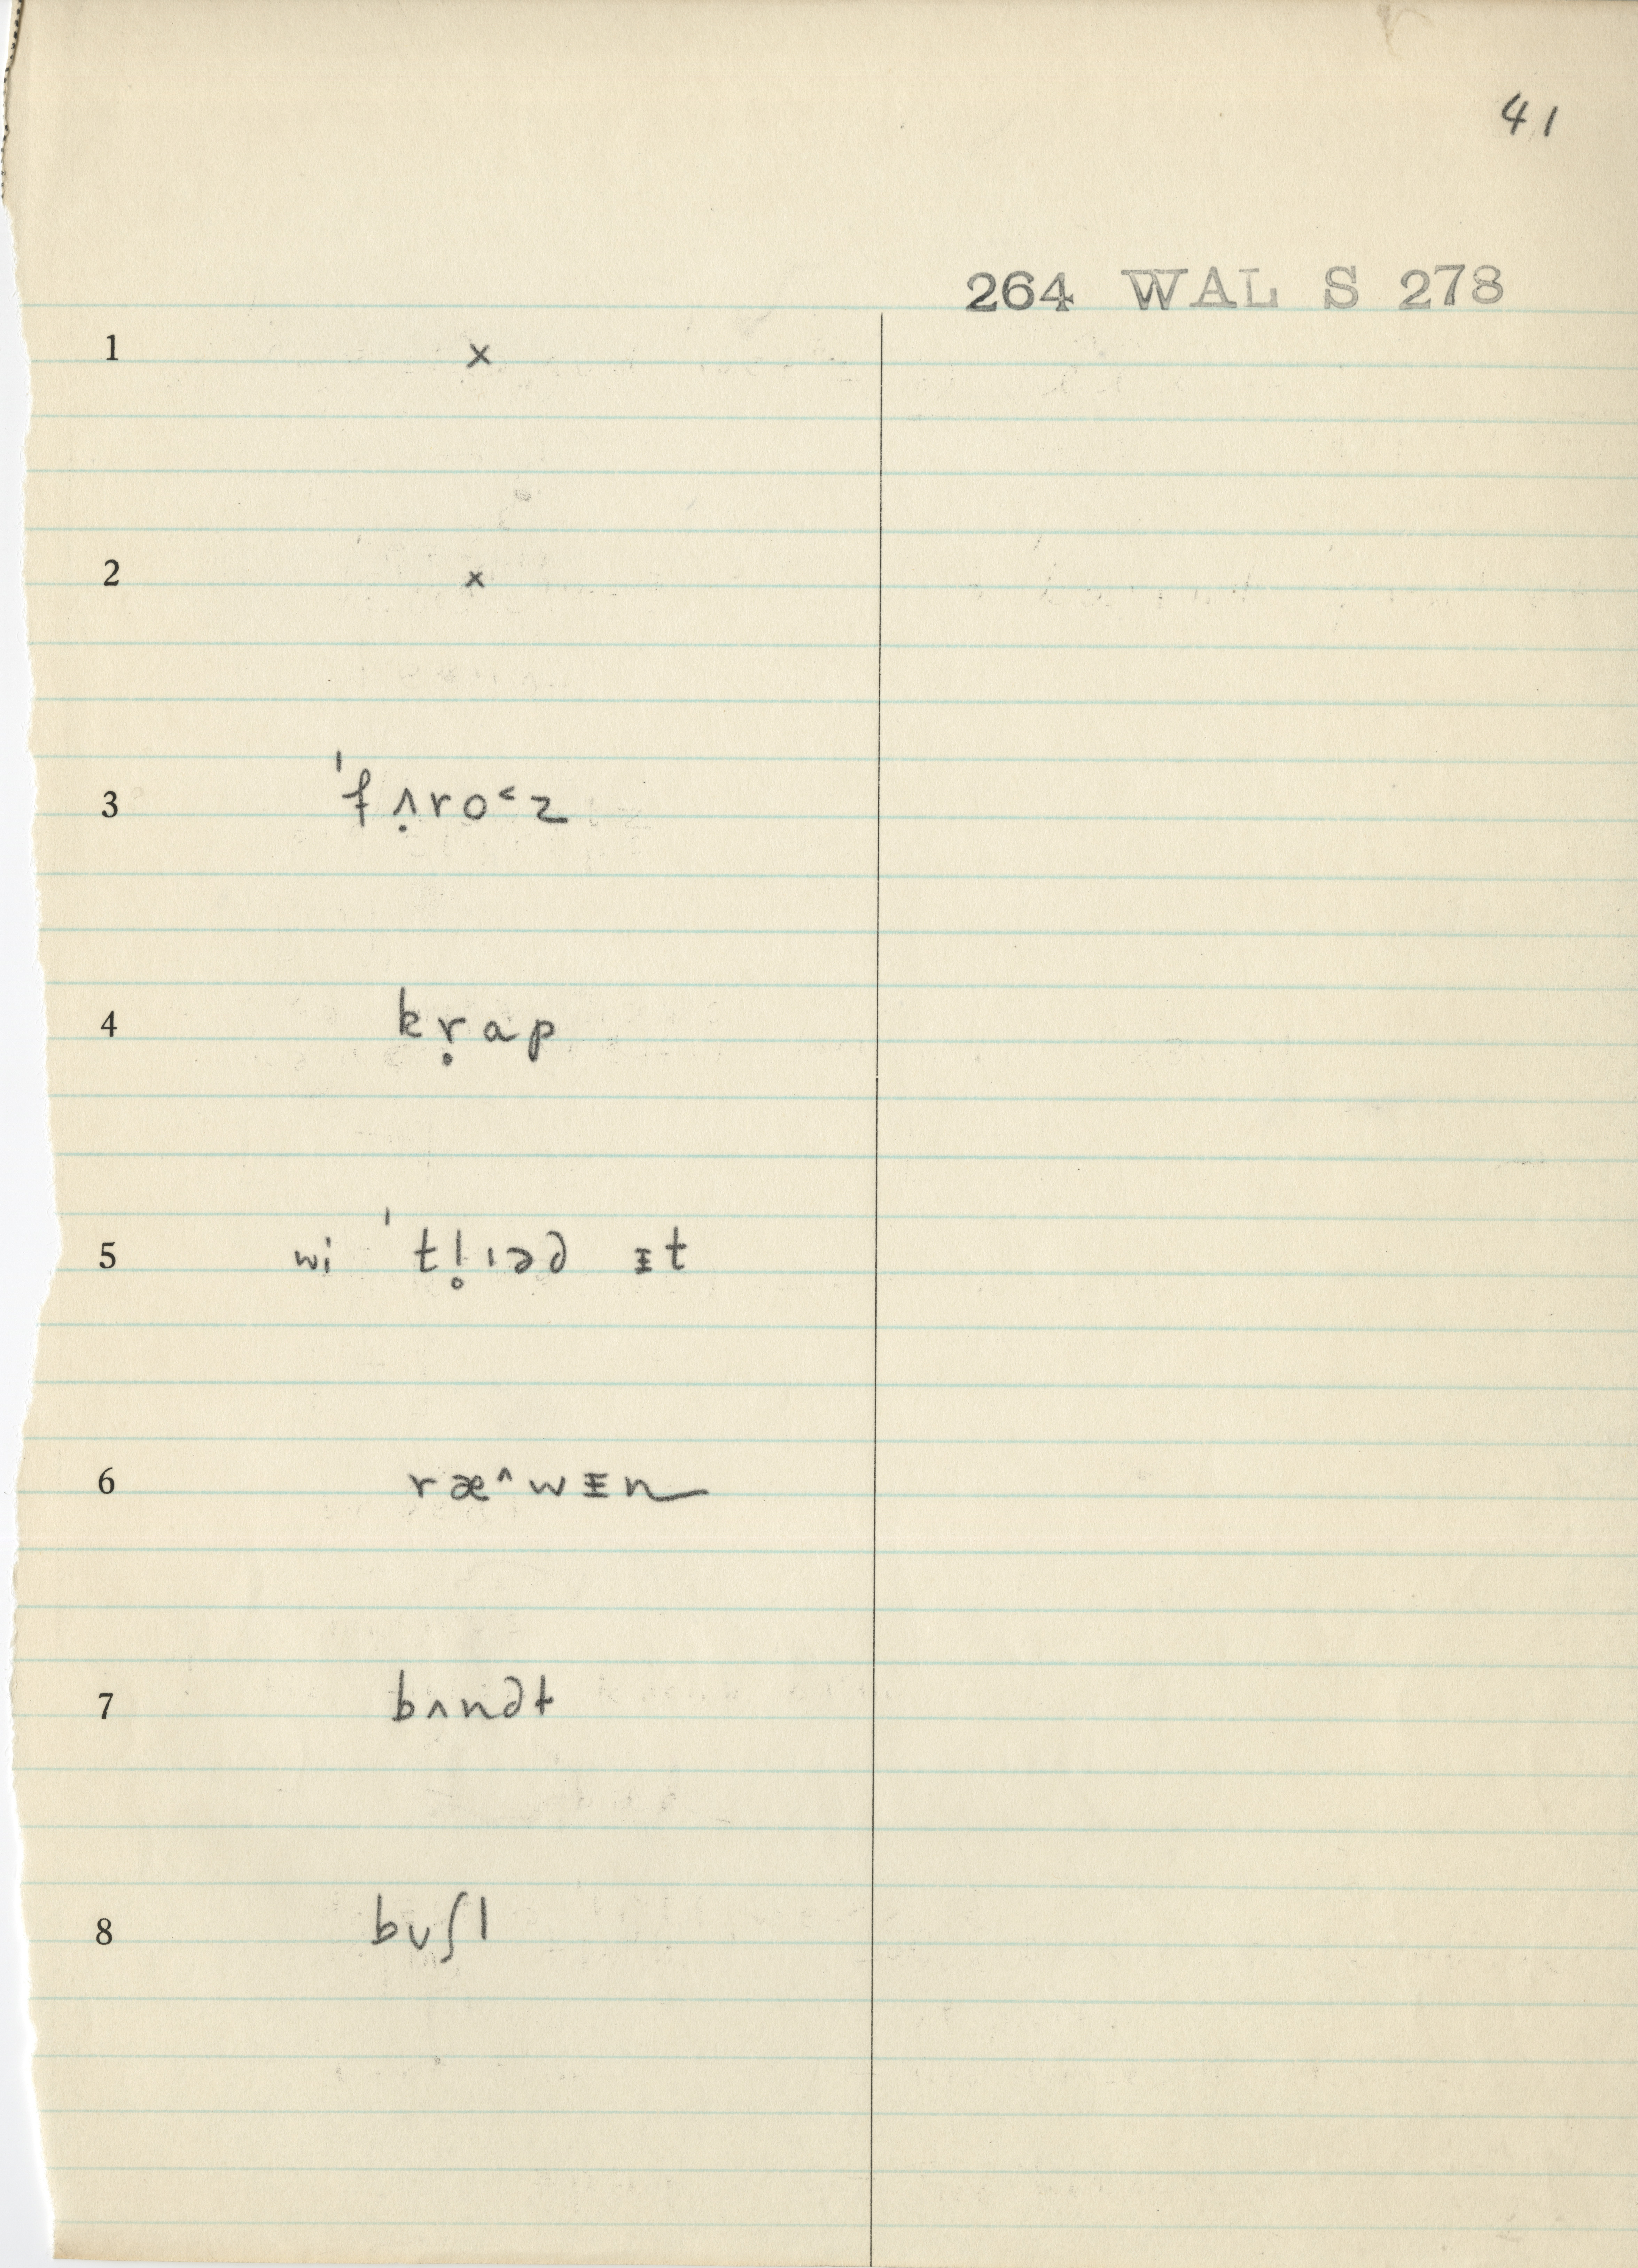 41
264 WAL S 278
1 x
2 x
3 ˈfʌ̣ro˂z
4 kṛap
5 wi ˈtl̥ɪə∂ ᵻt
6 ræ˄wᵻn
7 bʌn∂t
8 bʊʃl